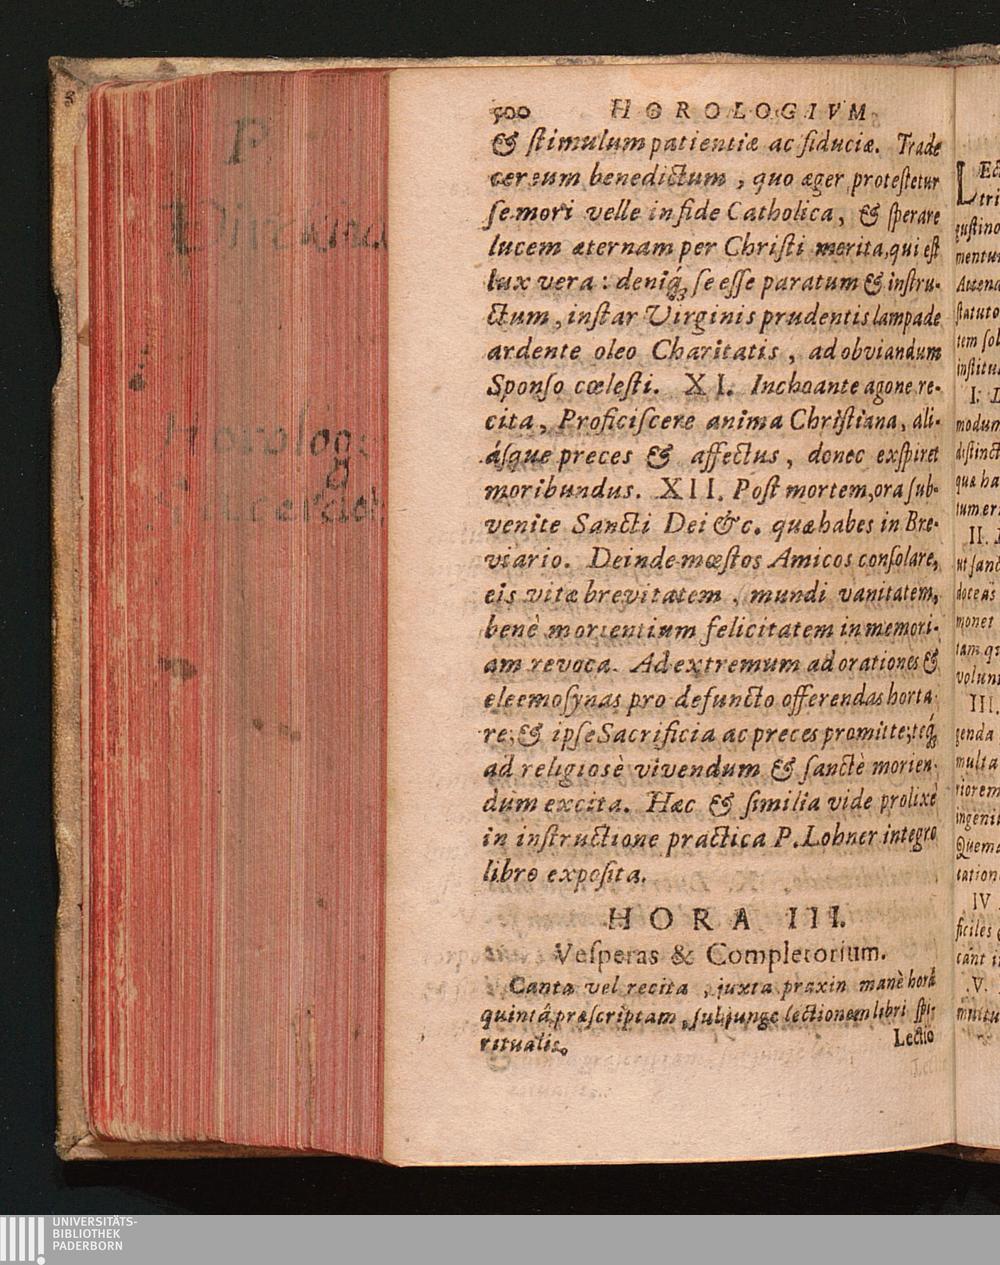 500 HOROLOGIVM
& ſtimulum patientiæ ac fiduciæ. Trade
cereum benedictum, quo æger proteſtetur
ſe mori velle in fide Catholica, & ſperare
lucem æternam per Chriſti merita, qui eſt
lux vera: deniq́; ſe eſſe paratum & inſtru-
ctum, inſtar Virginis prudentis lampade
ardente oleo Charitatis, ad obviandum
Sponſo cœleſti. XI. Inchoante agone re-
cita, Proficiſcere anima Chriſtiana, ali-
áſque preces & affectus, donec exſpiret
moribundus. XII. Poſt mortem, ora ſub-
venite Sancti Dei &c. quæ habes in Bre-
viario. Deinde mœſtos Amicos conſolare,
eis vitæ brevitatem, mundi vanitatem,
benè morientium felicitatem in memori-
am revoca. Ad extremum ad orationes &
eleemoſynas pro defuncto offerendas horta-
re; & ipſe Sacrificia ac preces promitte; teq́;
ad religiosè vivendum & ſanctè morien-
dum excita. Hæc & ſimilia vide prolixè
in inſtructione practica P. Lohner integro
libro expoſita.
HORA III.
Veſperas & Completorium.
Canta vel recita, juxta praxin manè horâ
quintâ præſcriptam, ſubjunge lectionem libri ſpi-
ritualis.
Lectio
UNIVERSITÄTS-
BIBLIOTHEK
PADERBORN